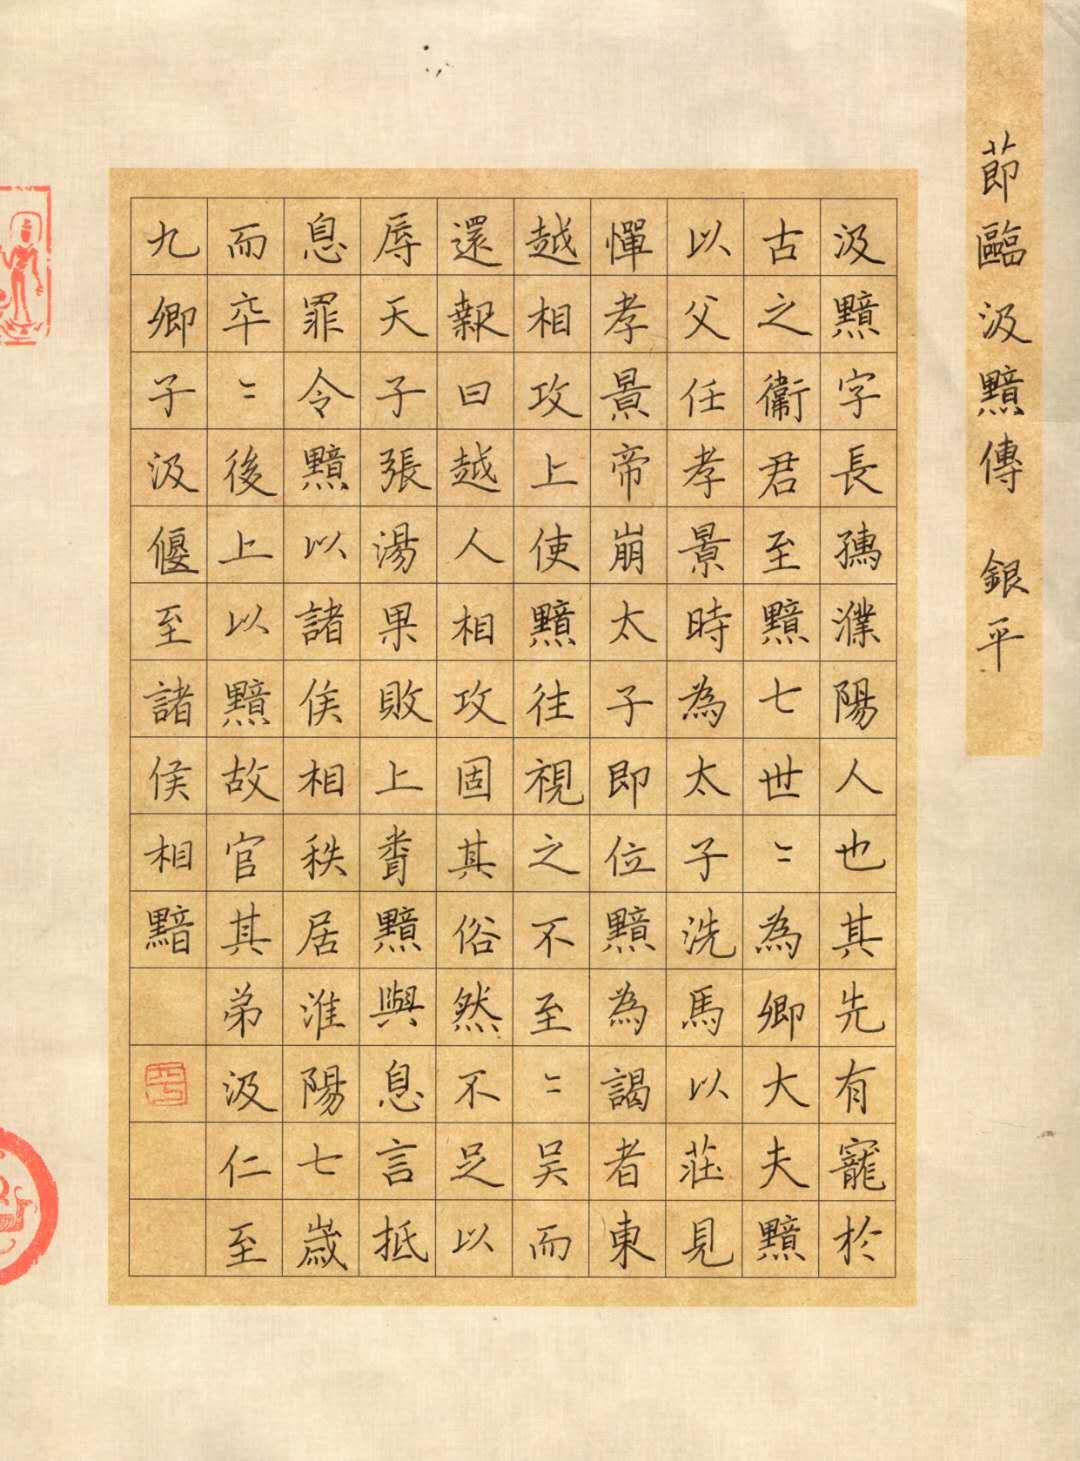 莭臨汲黯傳 銀平
汲黯字長孺濮陽人也其先有寵於
古之衛君至黯七世〻為卿大夫黯
以父任孝景時為太子洗馬以莊見
憚孝景帝崩太子即位黯為謁者東
越相攻上使黯往視之不至〻吳而
還報曰越人相攻固其俗然不足以
辱天子張湯果敗上黯與息言抵
息罪令黯以諸侯相秩居淮陽七歲
而卒〻後上以黯故官其弟汲仁至
九卿子汲偃至諸侯相黯